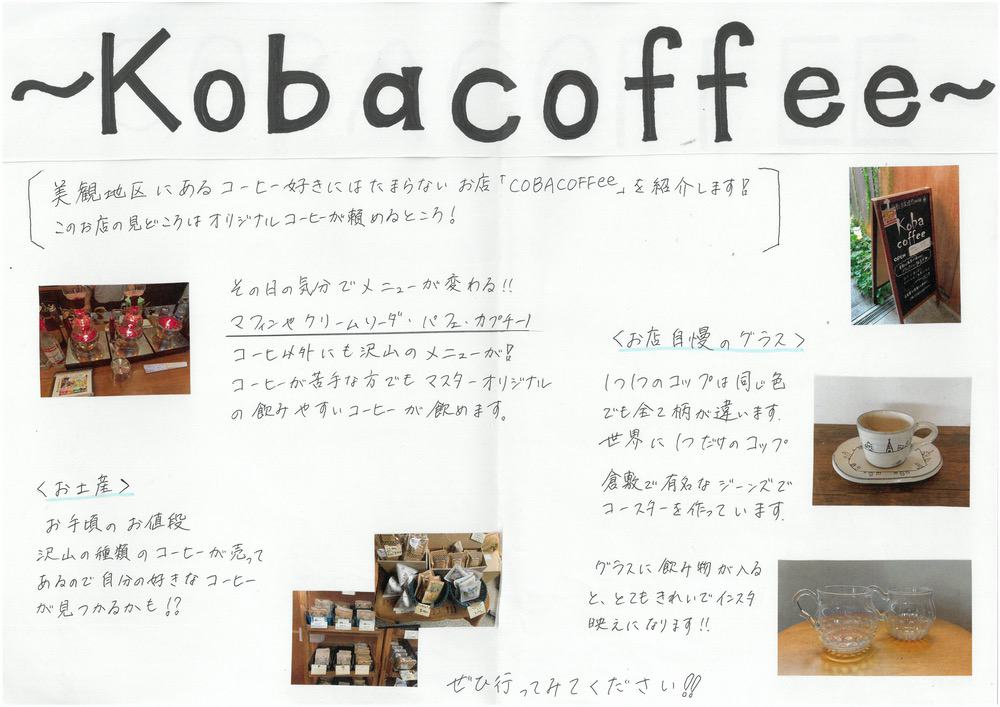 ~Kobacoffee~
美観地区にあるコーヒー好きにはたまらないお店「COBACOFFee」を紹介します!!
このお店の見どころはオリジナルコーヒーが頼めるところ!
その日の気分でメニューが変わる!!
マフィンやクリームソーダ・パフェ・カプチーノ
コーヒー以外にも沢山のメニューが!!
コーヒーが苦手な方でもマスターオリジナル
の飲みやすいコーヒーが飲めます。
<お土産>
お手頃のお値段
沢山の種類のコーヒーが売って
あるので自分の好きなコーヒー
が見つかるかも!?
Koba
coffee
OPEN
<お店自慢のグラス>
1つ1つのコップは同じ色
でも全て柄が違います。
世界に1つだけのコップ
倉敷で有名なジーンズで
コースターを作っています。
グラスに飲み物が入る
と、とてもきれいでインスタ
映えになります!!
ぜひ行ってみてください!!